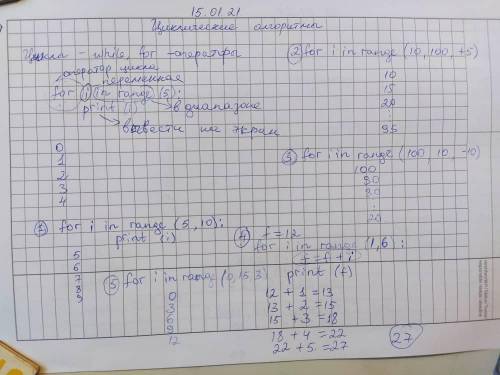 15.01.21
Циклические алгоритмы
Циклы - while, for - операторы
оператор цикла
переменная
for i in range (5):
print (i) в диапазоне
вывести на экран
0
1
2
3
4
① for i in range (5,10):
print (i)
5
6
7
8
9
② for i in range (10, 100, +5)
10
15
20
:
95
③ for i in range (100, 10, -10)
100
90
80
:
20
④ f=12
for i in range (1,6):
f=f+i
print (f)
12 + 1 = 13
13 + 2 = 15
15 + 3 = 18
18 + 4 = 22
22 + 5 = 27
27
⑤ for i in range (0,15,3)
0
3
6
9
12